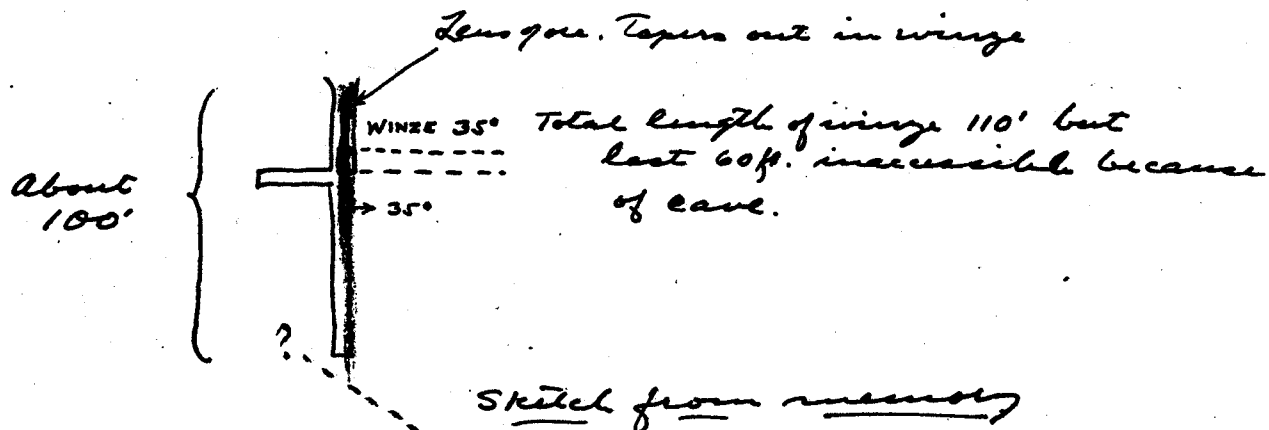 Lens ore. Tapers out in winze
WINZE 35°
Total length of winze 110' but
last 60 ft. inaccessible because
of cave.
About
100'
→ 35°
?
Sketch from memory